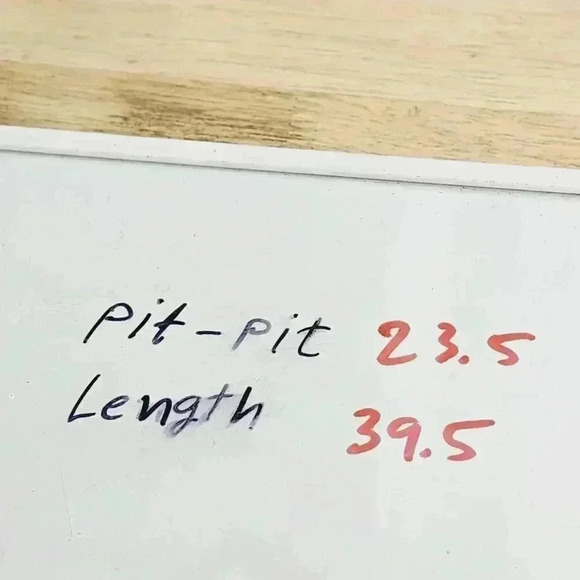 Pit-Pit 23.5
Length 39.5